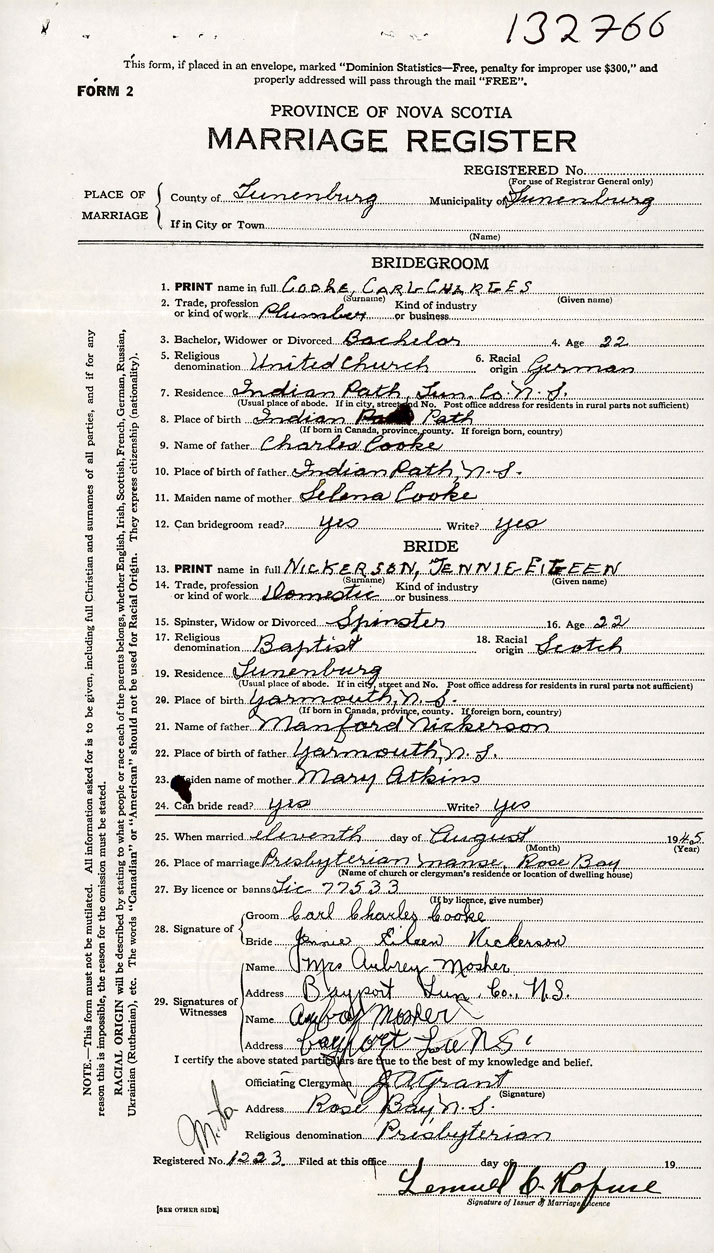 132766
This form, if placed in an envelope, marked "Dominion Statistics—Free, penalty for improper use $300," and
properly addressed will pass through the mail "FREE".
FORM 2
PROVINCE OF NOVA SCOTIA
MARRIAGE REGISTER
REGISTERED No.
(For use of Registrar General only)
PLACE OF MARRIAGE
County of Lunenburg Municipality of Lunenburg
If in City or Town
(Name)
BRIDEGROOM
1. PRINT name in full COOKE, CARL CHARLES
(Surname) (Given name)
2. Trade, profession or kind of work Plumber Kind of industry or business
3. Bachelor, Widower or Divorced Bachelor 4. Age 22
5. Religious denomination United Church 6. Racial origin German
7. Residence Indian Path, Lun. Co. N.S.
(Usual place of abode. If in city, street and No. Post office address for residents in rural parts not sufficient)
8. Place of birth Indian Path
(If born in Canada, province, county. If foreign born, country)
9. Name of father Charles Cooke
10. Place of birth of father Indian Path, N.S.
11. Maiden name of mother Selena Cooke
12. Can bridegroom read? yes Write? yes
BRIDE
13. PRINT name in full NICKERSON, JENNIE EILEEN
(Surname) (Given name)
14. Trade, profession or kind of work Domestic Kind of industry or business
15. Spinster, Widow or Divorced Spinster 16. Age 22
17. Religious denomination Baptist 18. Racial origin Scotch
19. Residence Lunenburg
(Usual place of abode. If in city, street and No. Post office address for residents in rural parts not sufficient)
20. Place of birth Yarmouth, N.S.
(If born in Canada, province, county. If foreign born, country)
21. Name of father Manford Nickerson
22. Place of birth of father Yarmouth, N.S.
23. Maiden name of mother Mary Atkins
24. Can bride read? yes Write? yes
25. When married eleventh day of August 1945
(Month) (Year)
26. Place of marriage Presbyterian manse, Rose Bay
(Name of church or clergyman's residence or location of dwelling house)
27. By licence or banns Lic 77533
(If by licence, give number)
28. Signature of
Groom Carl Charles Cooke
Bride Jennie Eileen Nickerson
29. Signatures of Witnesses
Name Mrs Aubrey Mosher
Address Bayport Lun. Co., N.S.
Name Aubrey Mosher
Address Bayport Lun N S
I certify the above stated particulars are true to the best of my knowledge and belief.
Officiating Clergyman J A Grant
(Signature)
Address Rose Bay N.S.
Religious denomination Presbyterian
Registered No. 1223 Filed at this office day of 19
Lemuel C. Rofuse
Signature of Issuer of Marriage Licence
[SEE OTHER SIDE]
NOTE.—This form must not be mutilated. All information asked for is to be given, including full Christian and surnames of all parties, and if for any
reason this is impossible, the reason for the omission must be stated.
RACIAL ORIGIN will be described by stating to what people or race each of the parents belongs, whether English, Irish, Scottish, French, German, Russian,
Ukrainian (Ruthenian), etc. The words "Canadian" or "American" should not be used for Racial Origin. They express citizenship (nationality).